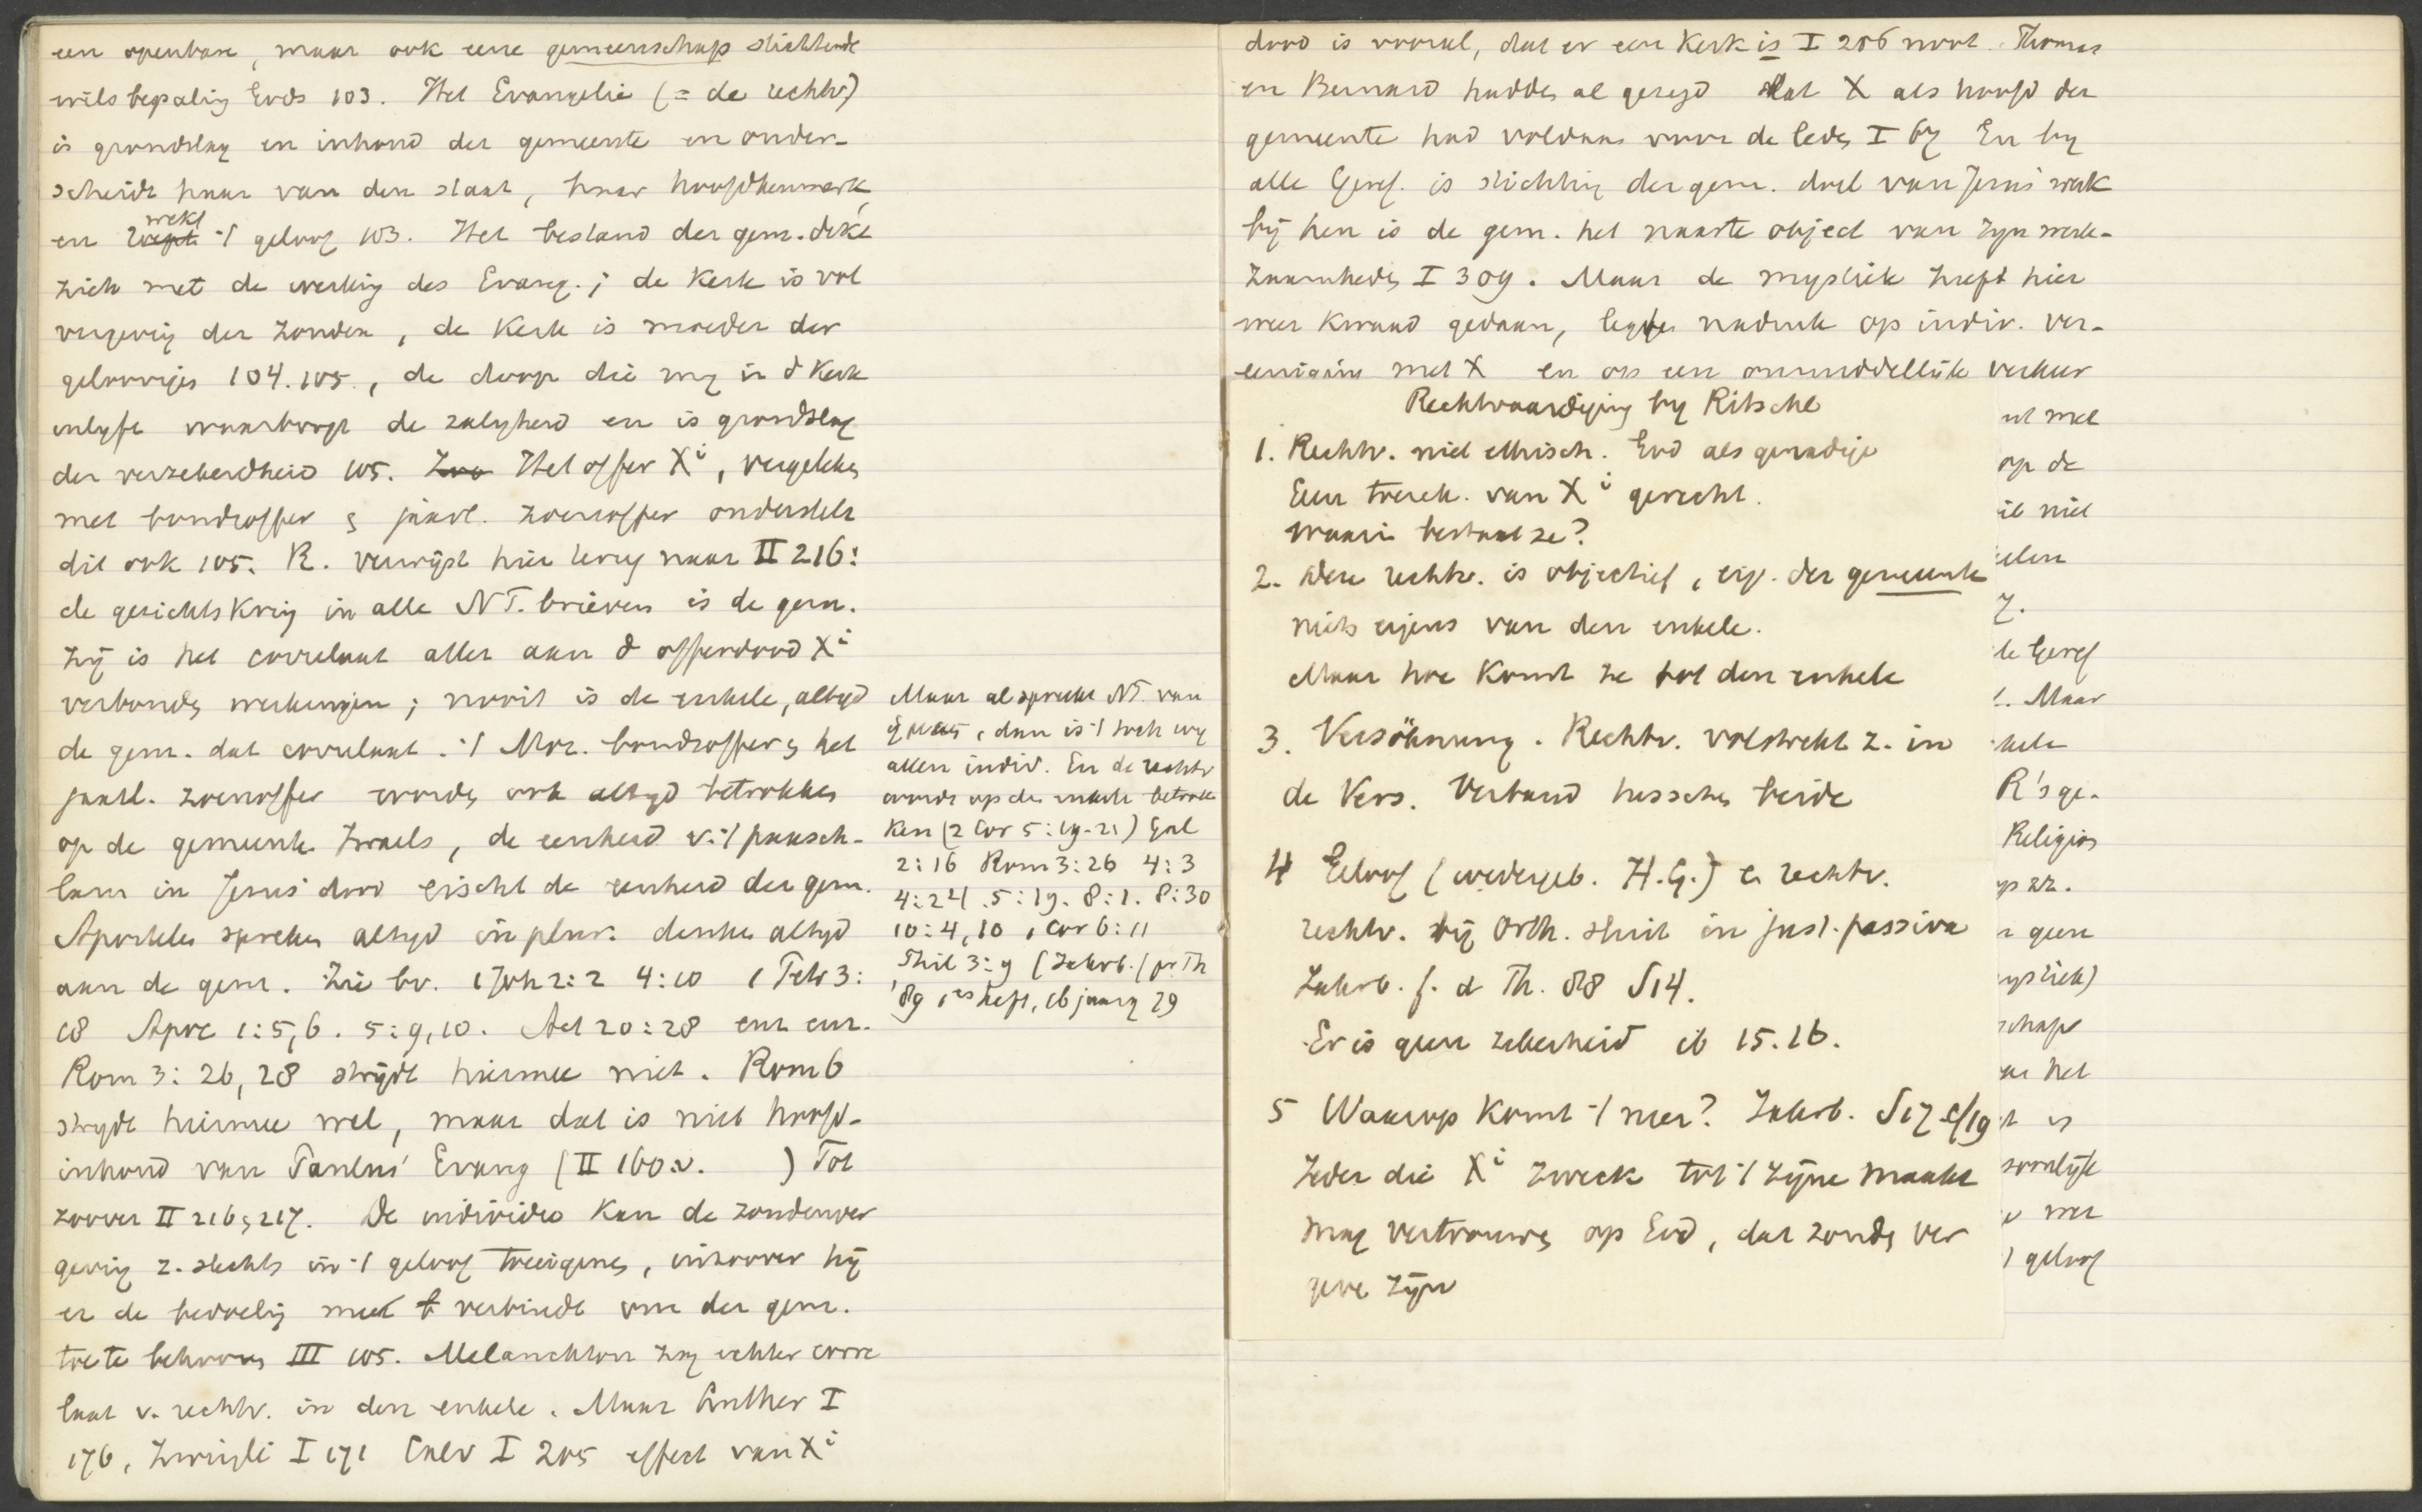 een openbare, maar ook eene gemeenschap stichtende
wilsbepaling Gods 103. Het Evangelie (= de rechtv.)
is grondslag en inhoud der gemeente en onder-
scheidt haar van den staat, haar hoofdkenmerk,
wekt
en 't geloof 103. Het bestand der gem. dekt
zich met de werking des Evang.; de Kerk is vol
vergeving der zonden, de Kerk is moeder der
geloovigen 104.105., de doop die mij in d Kerk
inlyft waarborgt de zaligheid en is grondslag
der verzekerdheid 105. Zoo Het offer Xi, vergeleken
met bondsoffer & jaarl. zoenoffer onderstelt
dit ook 105. R. verwijst hier terug naar II 216:
de gezichtskring in alle N T. brieven is de gem.
zij is het correlaat aller aan d offerdood Xi
verbonden werkingen; nooit is de enkele, altijd
de gem. dat correlaat. 't Moz. bondsoffer & het
jaarl. zoenoffer worden ook altijd betrokken
op de gemeente Israels, de eenheid v. 't paasch-
lam in Jezus' dood eischt de eenheid der gem.
Apostelen spreken altijd in plur. denken altijd
aan de gem. Zie bv. 1 Joh 2:2 4:10 1 Petr 3:
18 Apoc 1:5,6. 5:9,10. Act 20:28 enz enz.
Rom 3:26,28 strijdt hiermee niet. Rom 6
strijdt hiermee wel, maar dat is niet hoofd-
inhoud van Paulus' Evang (II 160 v. ) Tot
zoover II 216, 217. De individeo kan de zondenver
geving z. slechts in 't geloof toeeigenen, inzoover hij
er de bedoeling mee verbindt om der gem.
toe te behooren III 105. Melanchton zag echter corre
laat v. rechtv. in den enkele. Maar Luther I
176, Zwingli I 171 Calv I 205 effect van Xi
Maar al spreekt NT. van
dan is 't toch wij
allen indiv. En de rechtv
wordt op den enkele betrok
ken (2 Cor 5:19-21) Gal
2:16 Rom 3:26 4:3
4:24. 5:19. 8:1. 8:30
10:4,10 1 Cor 6:11
Phil 3:9 (Jahrb. f pr Th
'89 1es heft, 16 jaarg 29
dood is vooral, dat er een Kerk is I 206 noot. Thomas
en Bernard hadden al gezegd dat X als hoofd der
gemeente had voldaan voor de leden I 67 En bij
alle Geref. is stichting der gem. doel van Jezus' werk
bij hen is de gem. het naaste object van zijn werk-
zaamheden I 309. Maar de mystiek heeft hier
weer kwaad gedaan, legde nadruk op indiv. ver-
eeniging met X en op een onmiddellijk verkeer
Rechtvaardiging by Ritschl
1. Rechtv. niet ethisch. God als genadige
Eur treck. van Xi gerecht.
Waarin bestaat ze?
2. Deze rechtv. is objectief, eig. der gemeente
niets eigens van den enkele.
Maar hoe komt ze tot den enkele
3. Versöhnung. Rechtv. volstrekt z. in
de Vers. Verband tusschen beide
4 Geloof (wedergeb. H.G.) & rechtv.
rechtv. bij Orth. sluit in just. passiva
Jahrb. f. d Th. 88 S 14.
Er is geen zekerheid ib 15.16.
5 Waarop komt 't neer? Jahrb. S 17 cf 19
Ieder die Xi zweck tot 't zijne maakt
mag vertrouwen op God, dat zonden ver
geve zijn
ut met
op de
it niet
elen
z.
de Geref
!. Maar
kele
R's ge-
Religion
op zz.
n geen
ystiek)
schaps
aar het
t is
soonlijke
v mer
) geloof